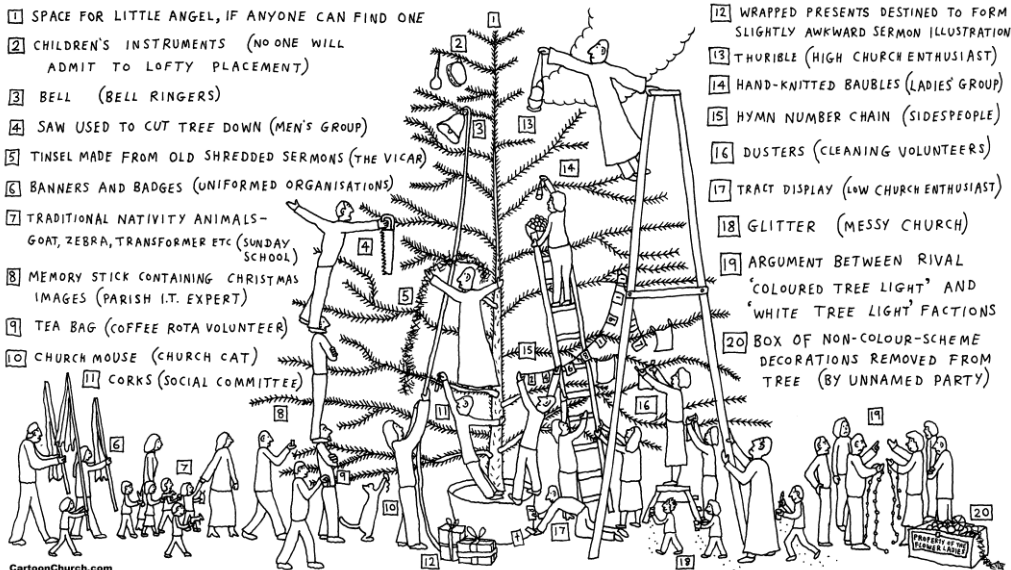 1 SPACE FOR LITTLE ANGEL, IF ANYONE CAN FIND ONE
2 CHILDREN'S INSTRUMENTS (NO ONE WILL
ADMIT TO LOFTY PLACEMENT)
3 BELL (BELL RINGERS)
4 SAW USED TO CUT TREE DOWN (MEN'S GROUP)
5 TINSEL MADE FROM OLD SHREDDED SERMONS (THE VICAR)
6 BANNERS AND BADGES (UNIFORMED ORGANISATIONS)
7 TRADITIONAL NATIVITY ANIMALS-
GOAT, ZEBRA, TRANSFORMER ETC (SUNDAY
SCHOOL)
8 MEMORY STICK CONTAINING CHRISTMAS
IMAGES (PARISH I.T. EXPERT)
9 TEA BAG (COFFEE ROTA VOLUNTEER)
10 CHURCH MOUSE (CHURCH CAT)
11 CORKS (SOCIAL COMMITTEE)
12 WRAPPED PRESENTS DESTINED TO FORM
SLIGHTLY AWKWARD SERMON ILLUSTRATION
13 THURIBLE (HIGH CHURCH ENTHUSIAST)
14 HAND-KNITTED BAUBLES (LADIES' GROUP)
15 HYMN NUMBER CHAIN (SIDESPEOPLE)
16 DUSTERS (CLEANING VOLUNTEERS)
17 TRACT DISPLAY (LOW CHURCH ENTHUSIAST)
18 GLITTER (MESSY CHURCH)
19 ARGUMENT BETWEEN RIVAL
'COLOURED TREE LIGHT' AND
'WHITE TREE LIGHT' FACTIONS
20 BOX OF NON-COLOUR-SCHEME
DECORATIONS REMOVED FROM
TREE (BY UNNAMED PARTY)
1
2
3
13
14
4
5
15
11
8
16
6
7
9
19
10
17
20
12
18
PROPERTY OF THE
FLOWER LADIES
CartoonChurch.com